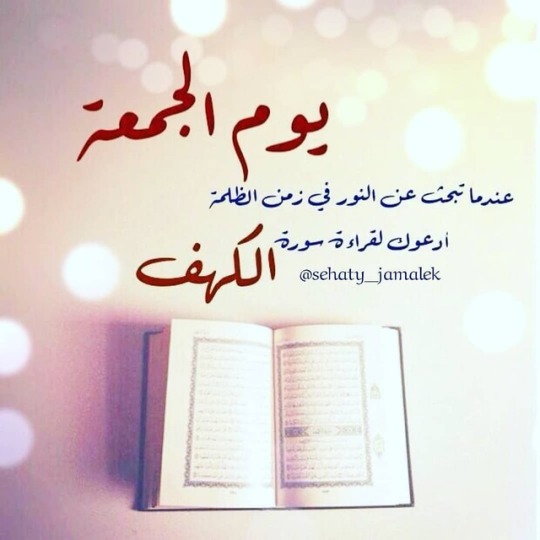 يوم الجمعة
عندما تبحث عن النور في زمن الظلمة
أدعوك لقراءة سورة
الكهف
@sehaty_jamalek